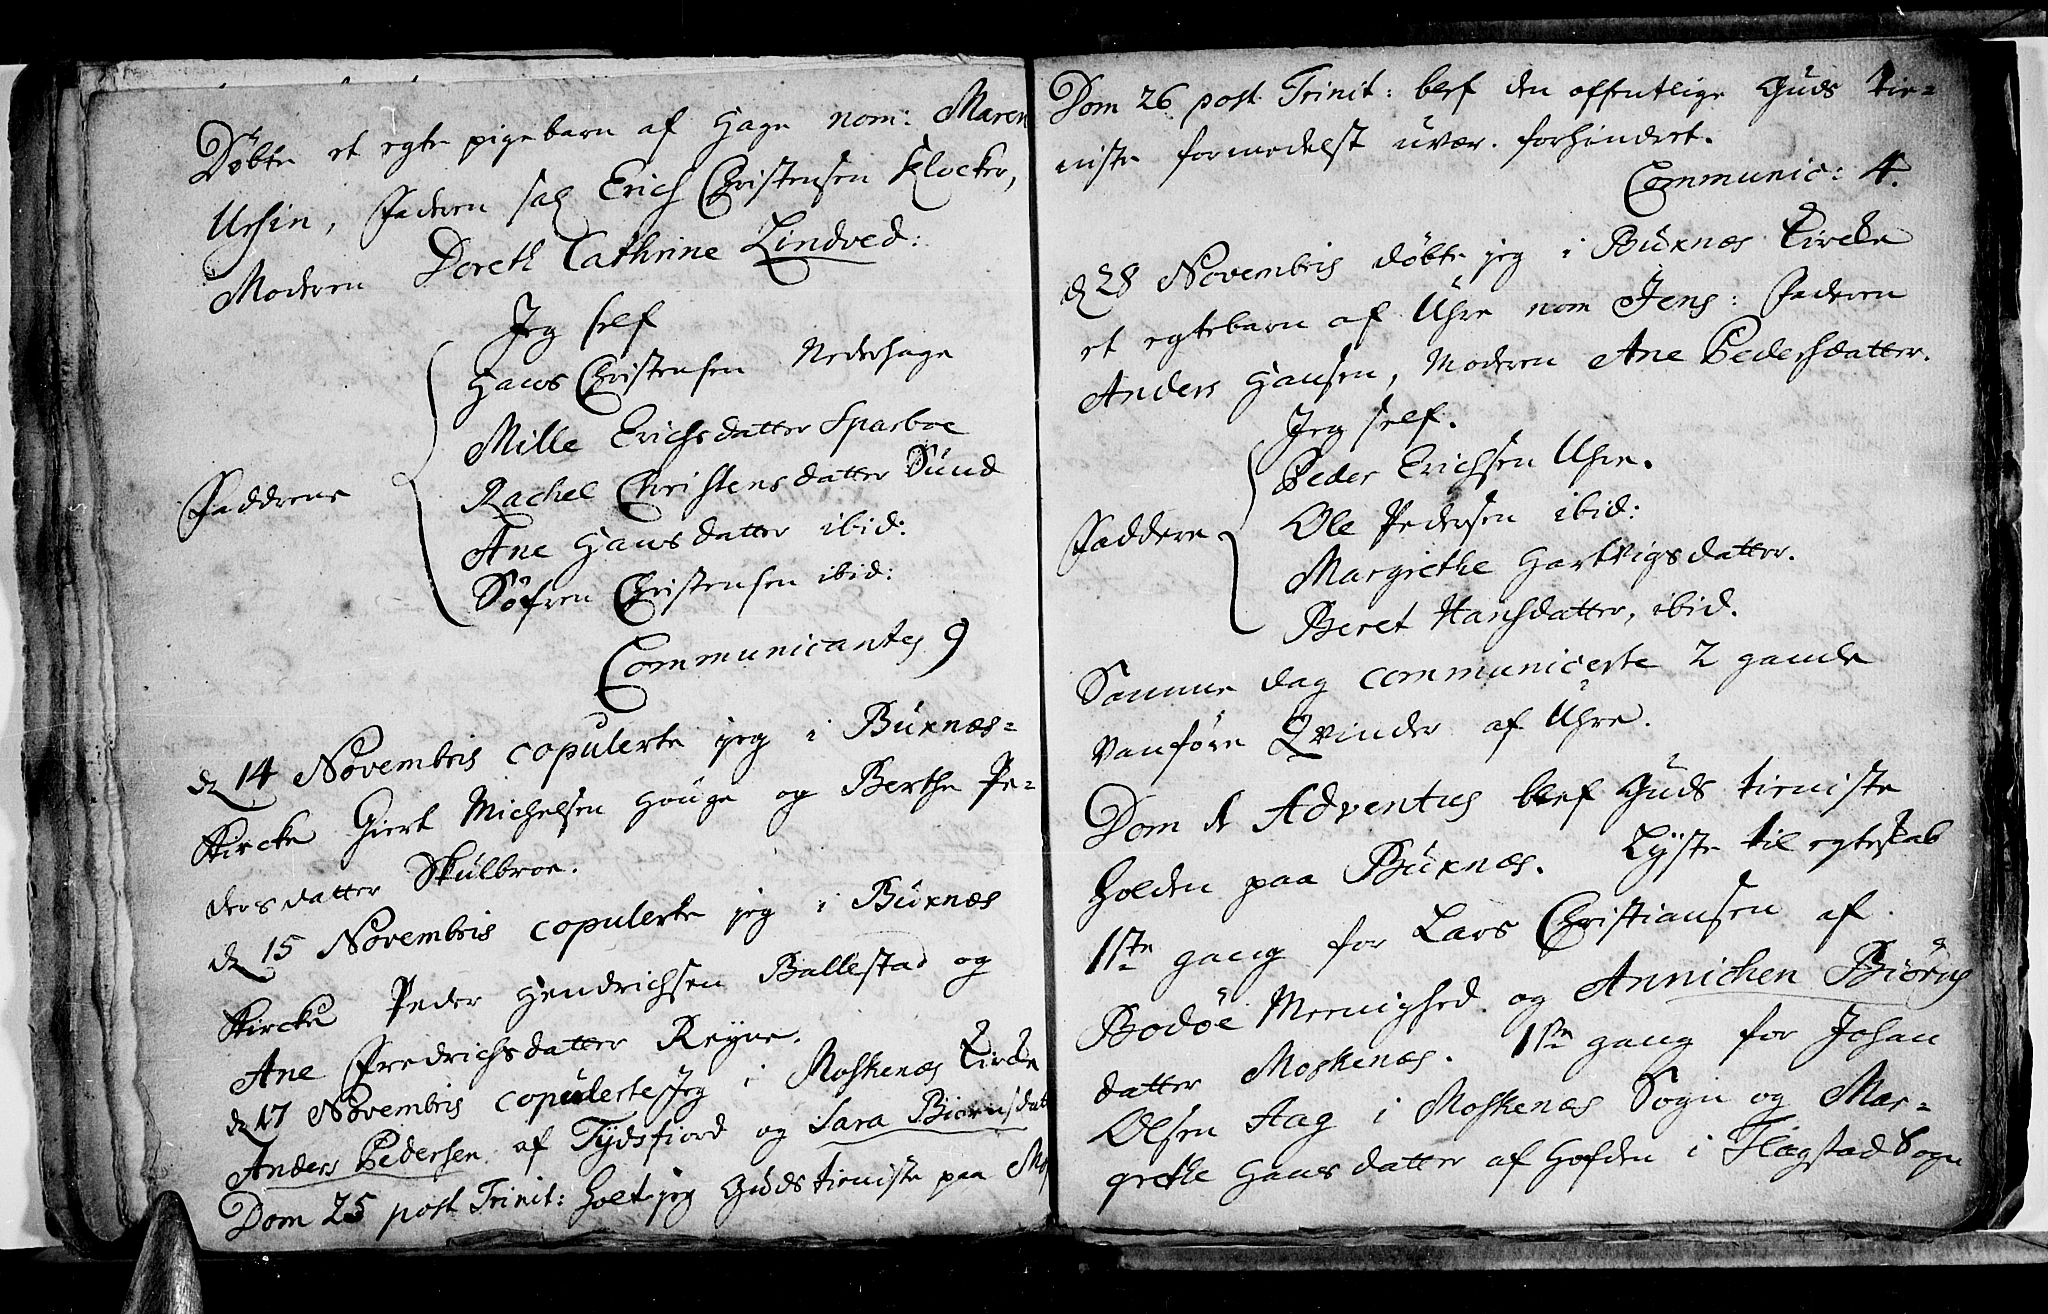 Døbte et egte pigebarn af Hage nom: Maren
Ursin, Faderen sal Erich Christensen Klocker,
Moderen Doreth Cathrine Lindved:
Jeg self
Hans Christensen Nederhage
Mille Erichsdatter Sparboe
Rachel Christensdatter Sund
Fadderne
Ane Hansdatter ibid:
Søfren Christensen ibid:
Communicantes 9
d 14 Novembris copulerte jeg i Buxnæs=
Kircke Giert Michelsen Houge og Berthe Pe=
dersdatter Skulbroe.
d 15 Novembris copulerte jeg i Buxnæs
Kircke Peder Hendrichsen Ballestad og
Ane Fredrichsdatter Reyne.
d 17 Novembris copulerte Jeg i Moskenæs Kircke
Anders Pedersen af Tydsfiord og Sara Biørnsdat
Dom 25 post Trinit: holt jeg Guds tieniste paa
Dom 26 post Trinit: blef den offentlige Guds tie=
niste formedelst uvær. forhindret.
Communic: 4.
d 28 Novembris døbte jeg i Buxnæs Kircke
et egtebarn af Uhre nom Jens: Faderen
Anders Hansen, Moderen Ane Pedersdatter.
Jeg self.
Peder Erichsen Uhre.
Ole Pedersen ibid:
Faddere
Margrethe Hartvigsdatter.
Beret Hansdatter, ibid.
Samme dag communicerte 2 gamle
vanføre Qvinder af Uhre.
Dom 1 Adventus blef Guds tieniste
holden paa Buxnæs. Lyste til egteskab
1ste gang for Lars Christiansen af
Bodøe Meenighed og Annichen Biørns
datter Moskenæs. 1ste gang for Johan
Olsen Aag i Moskenæs Sogn og Mar=
grethe Hansdatter af Hofden i Flagstad Sogn